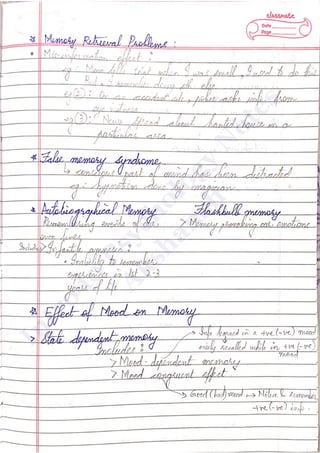 classmate
Date
Page
* Memory Retrieval Problems :
* Misinformation effect :
eg : Mom tell that when I was small, I used to do this
But I remember doing sth else
eg(2): On an accident site, police asks info from
eye witness
eg(3): News spread about haunted house in a
particular area
* False memory syndrome
↳ conscious part of mind has been distracted
eg: hypnotism done by magician
* Autobiographical Memory
Flashbulb memory
Remembering events of our
own lives
> Memory provoking our emotions
Includes > Infantile amnesia :
• Inability to remember
experiences in 1st 2-3
years of life
* Effect of Mood on Memory
> State dependent memory
Includes :
> Mood-dependent memory
→ Info learned in a +ve (-ve) mood
easily recalled while in +ve (-ve)
mood
> Mood congruent effect
→ Good (bad) mood → Notice & remember
+ve (-ve) info